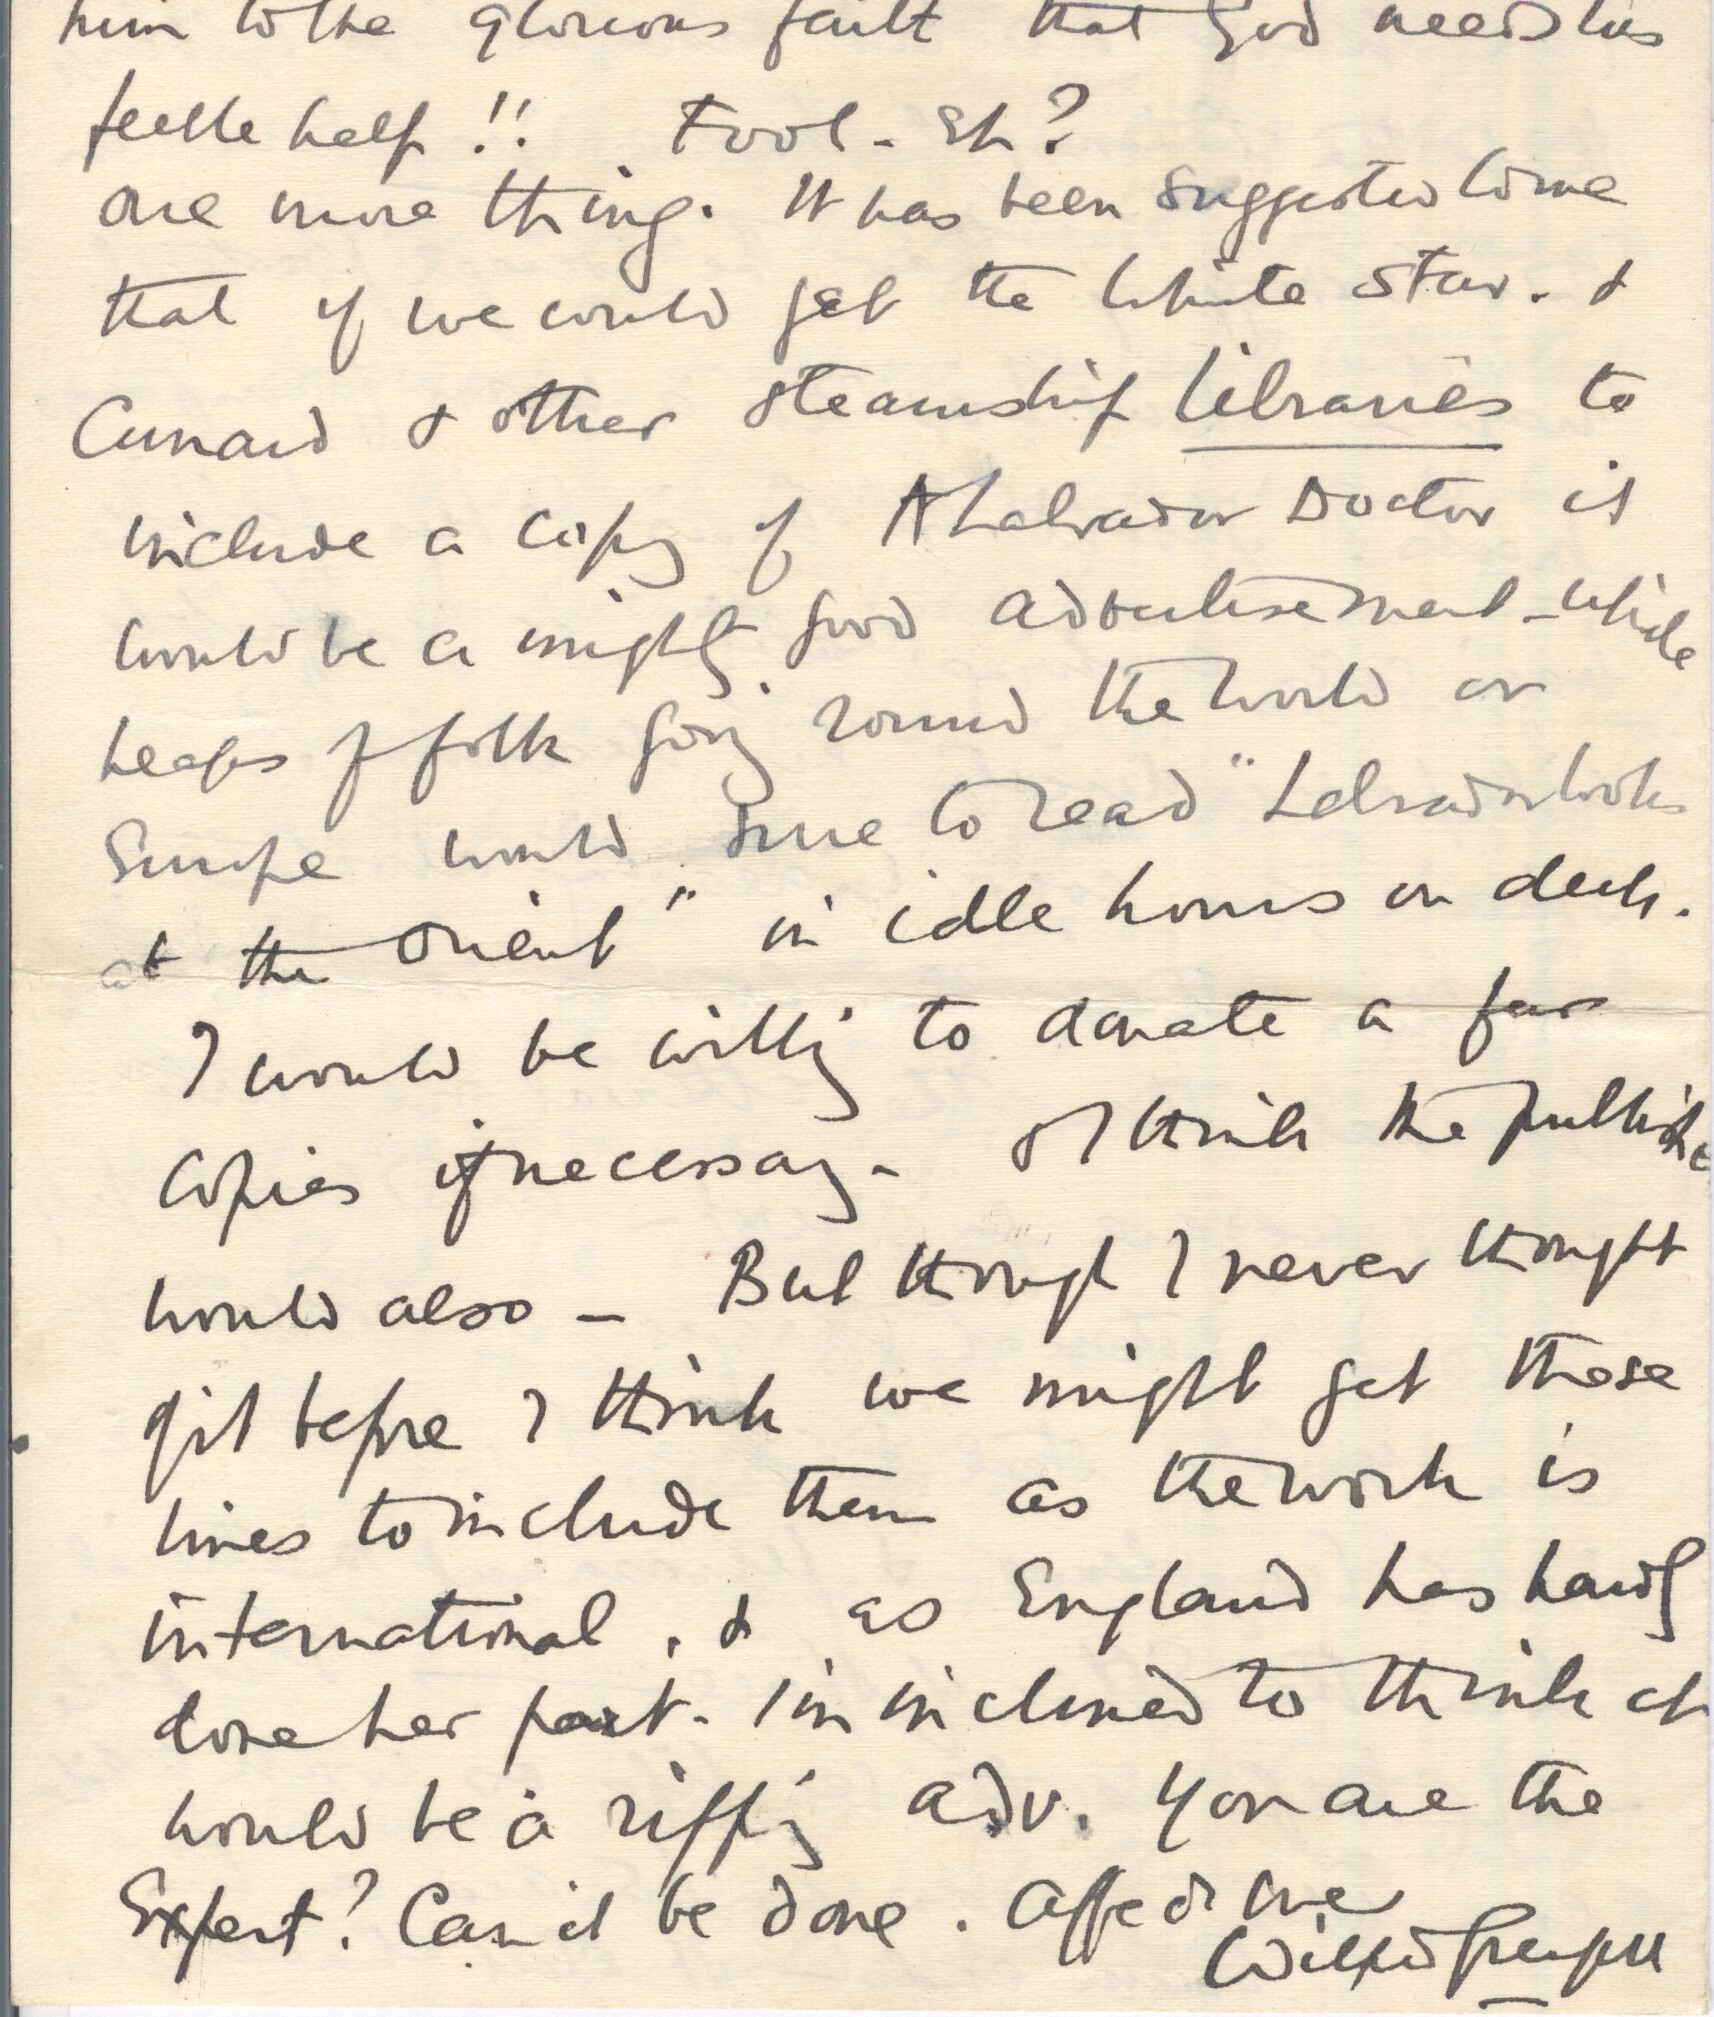 him to the glorious faith that God needs his
feeble help!! Fool - Eh?
one more thing. It has been suggested to me
that if we could get the White Star. &
Cunard & other steamship libraries to
include a copy of A Labrador Doctor it
would be a mighty good advertisement - while
heaps of folk going round the world or
Europe would sure to read "Labrador looks
at the Orient" in idle hours on deck.
I would be willing to donate a few
copies if necessary - & I think the publishe
would also - But though I never thought
of it before I think we might get these
lines to include them as the work is
international, & as England has hardly
done her part. I'm inclined to think it
would be a ripping adv. You are the
Expert? Can it be done. Affec
Wilfred Grenfell